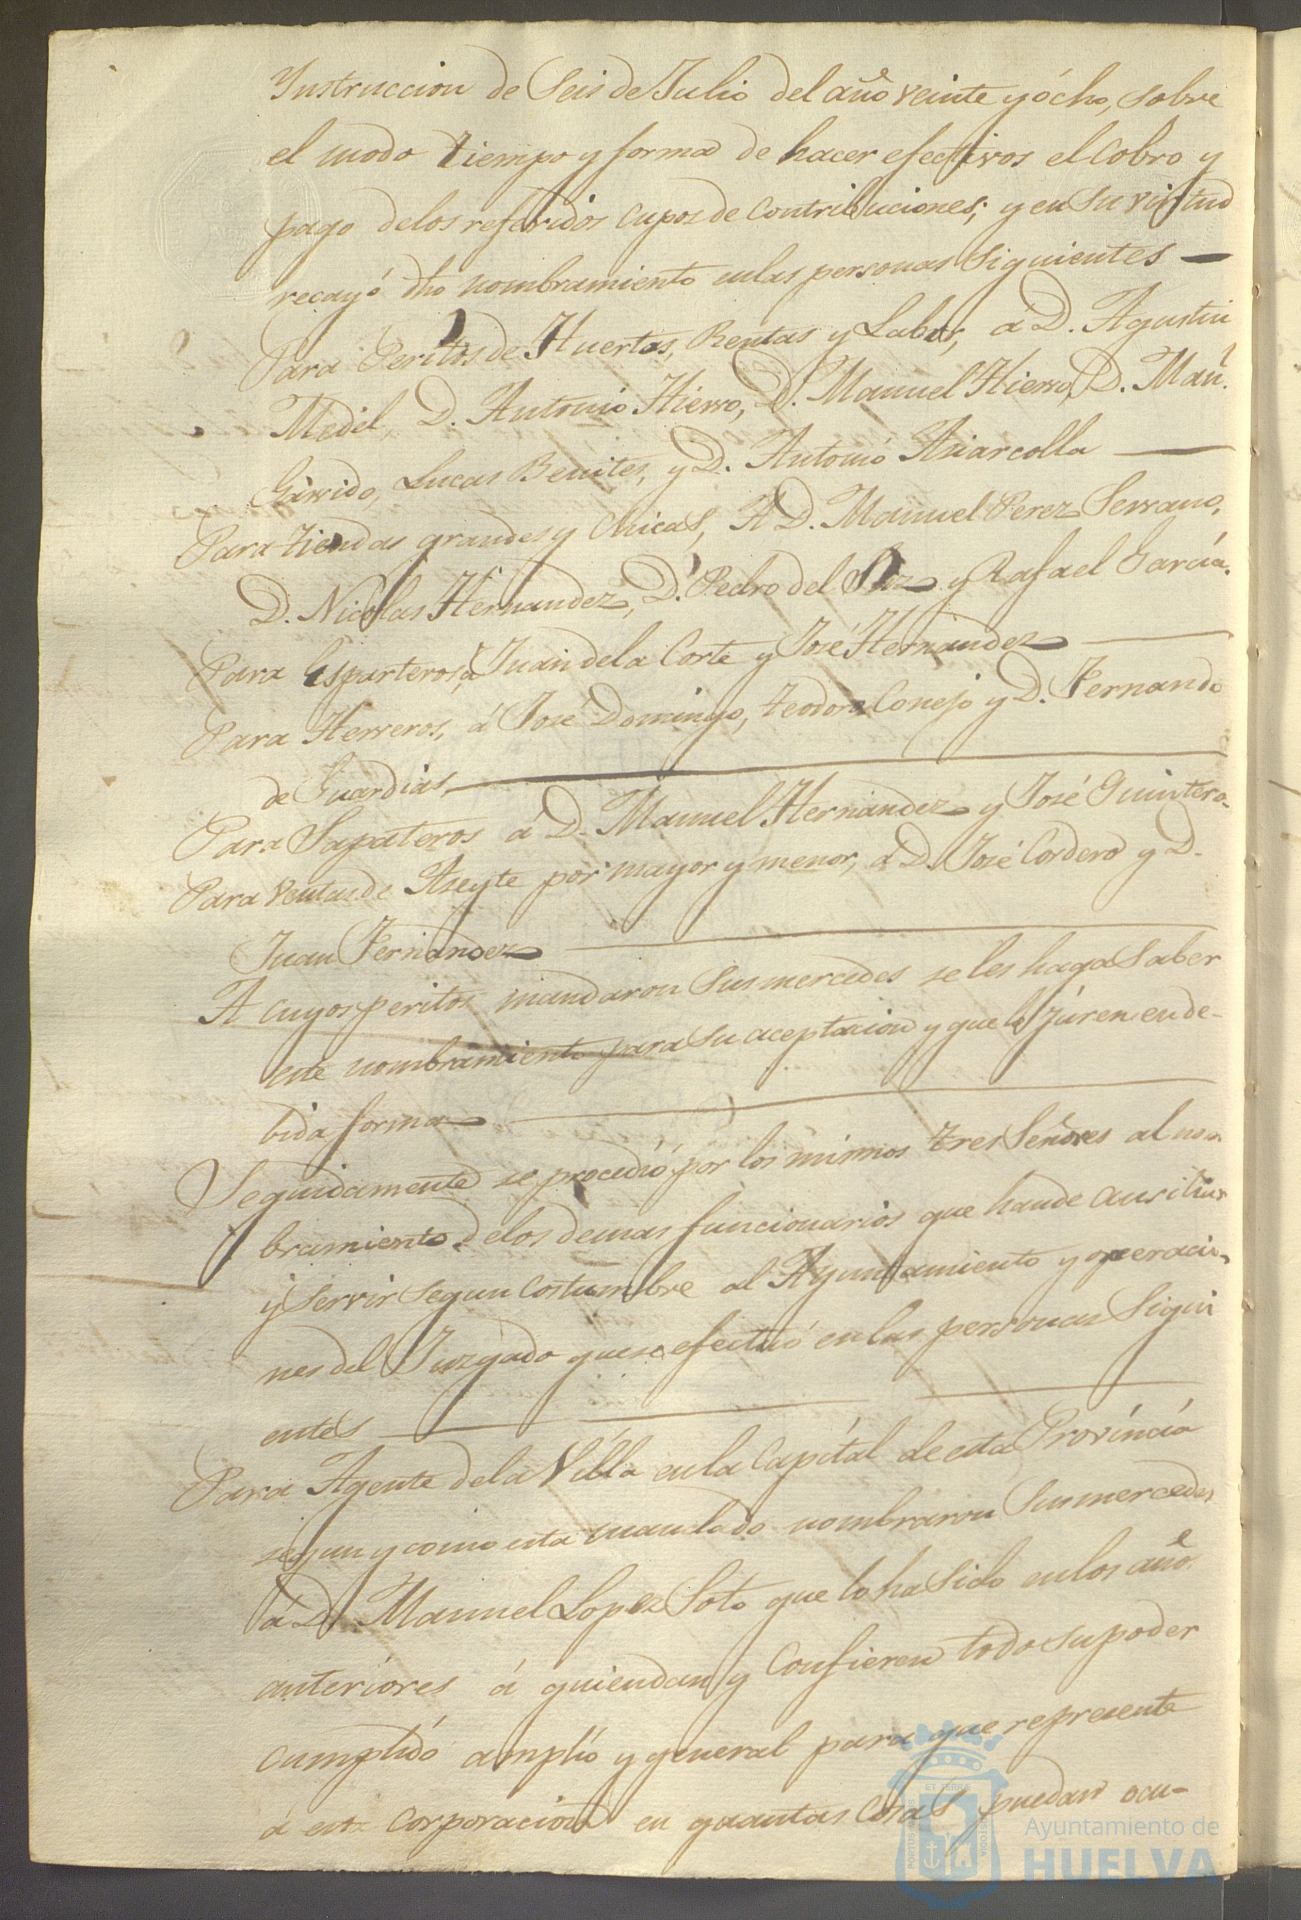 Ynstruccion de Seis de Julio del año veinte y ócho, sobre
el modo tiempo y forma de hacer efectivos el Cobro y
pago de los referidos cupos de Contribuciones; y en su virtud
recayó dho nombramiento en las personas Siguientes —
Para Peritos de Huertas, Rentas y Labor, á D. Agustin
Medel, D. Antonio Hierro, D. Manuel Hierro, D. Mañ.
Garrido, Lucas Benites, y D. Antonio
Para tiendas grandes y Chicas, A D. Manuel Perez Serrano,
D. Nicolas Hernandez, D. Pedro del y Rafael García.
Para Esparteros, á Juan de la Corte y José Hernandez —
Para Herreros, á José Domingo, teodoro Conejo y D. Fernando
de Guardias, —
Para Sapateros á D. Manuel Hernandez y José Quintero.
Para Ventas de Aseyte por mayor y menor, á D. José Cordero y D.
Juan Fernandez —
A cuyos peritos mandaron Sus mercedes se les haga Saber
este nombramiento para su aceptacion y que lo júren en de-
bida forma —
Seguidamente se procedió por los mismos tres Señores al nom
bramiento de los demas funcionarios que han de Ausiliar
y Servir Segun Costumbre al Ayuntamiento y operacio
nes del Juzgado que se efectuó en las personas Sigui
entes —
Para Agente de la Villa en la Capital de esta Província
segun y como esta mandado nombraron Sus mercedes
á D. Manuel Lopez Soto que lo ha Sido en los años
anteriores á quien dan y Confieren todo su poder
cumplido amplio y general para que represente
á esta Corporacion en quantas Cosas puedan ocu-
PORTUS MARIS
ET TERRÆ
CUSTODIA
Ayuntamiento de
HUELVA